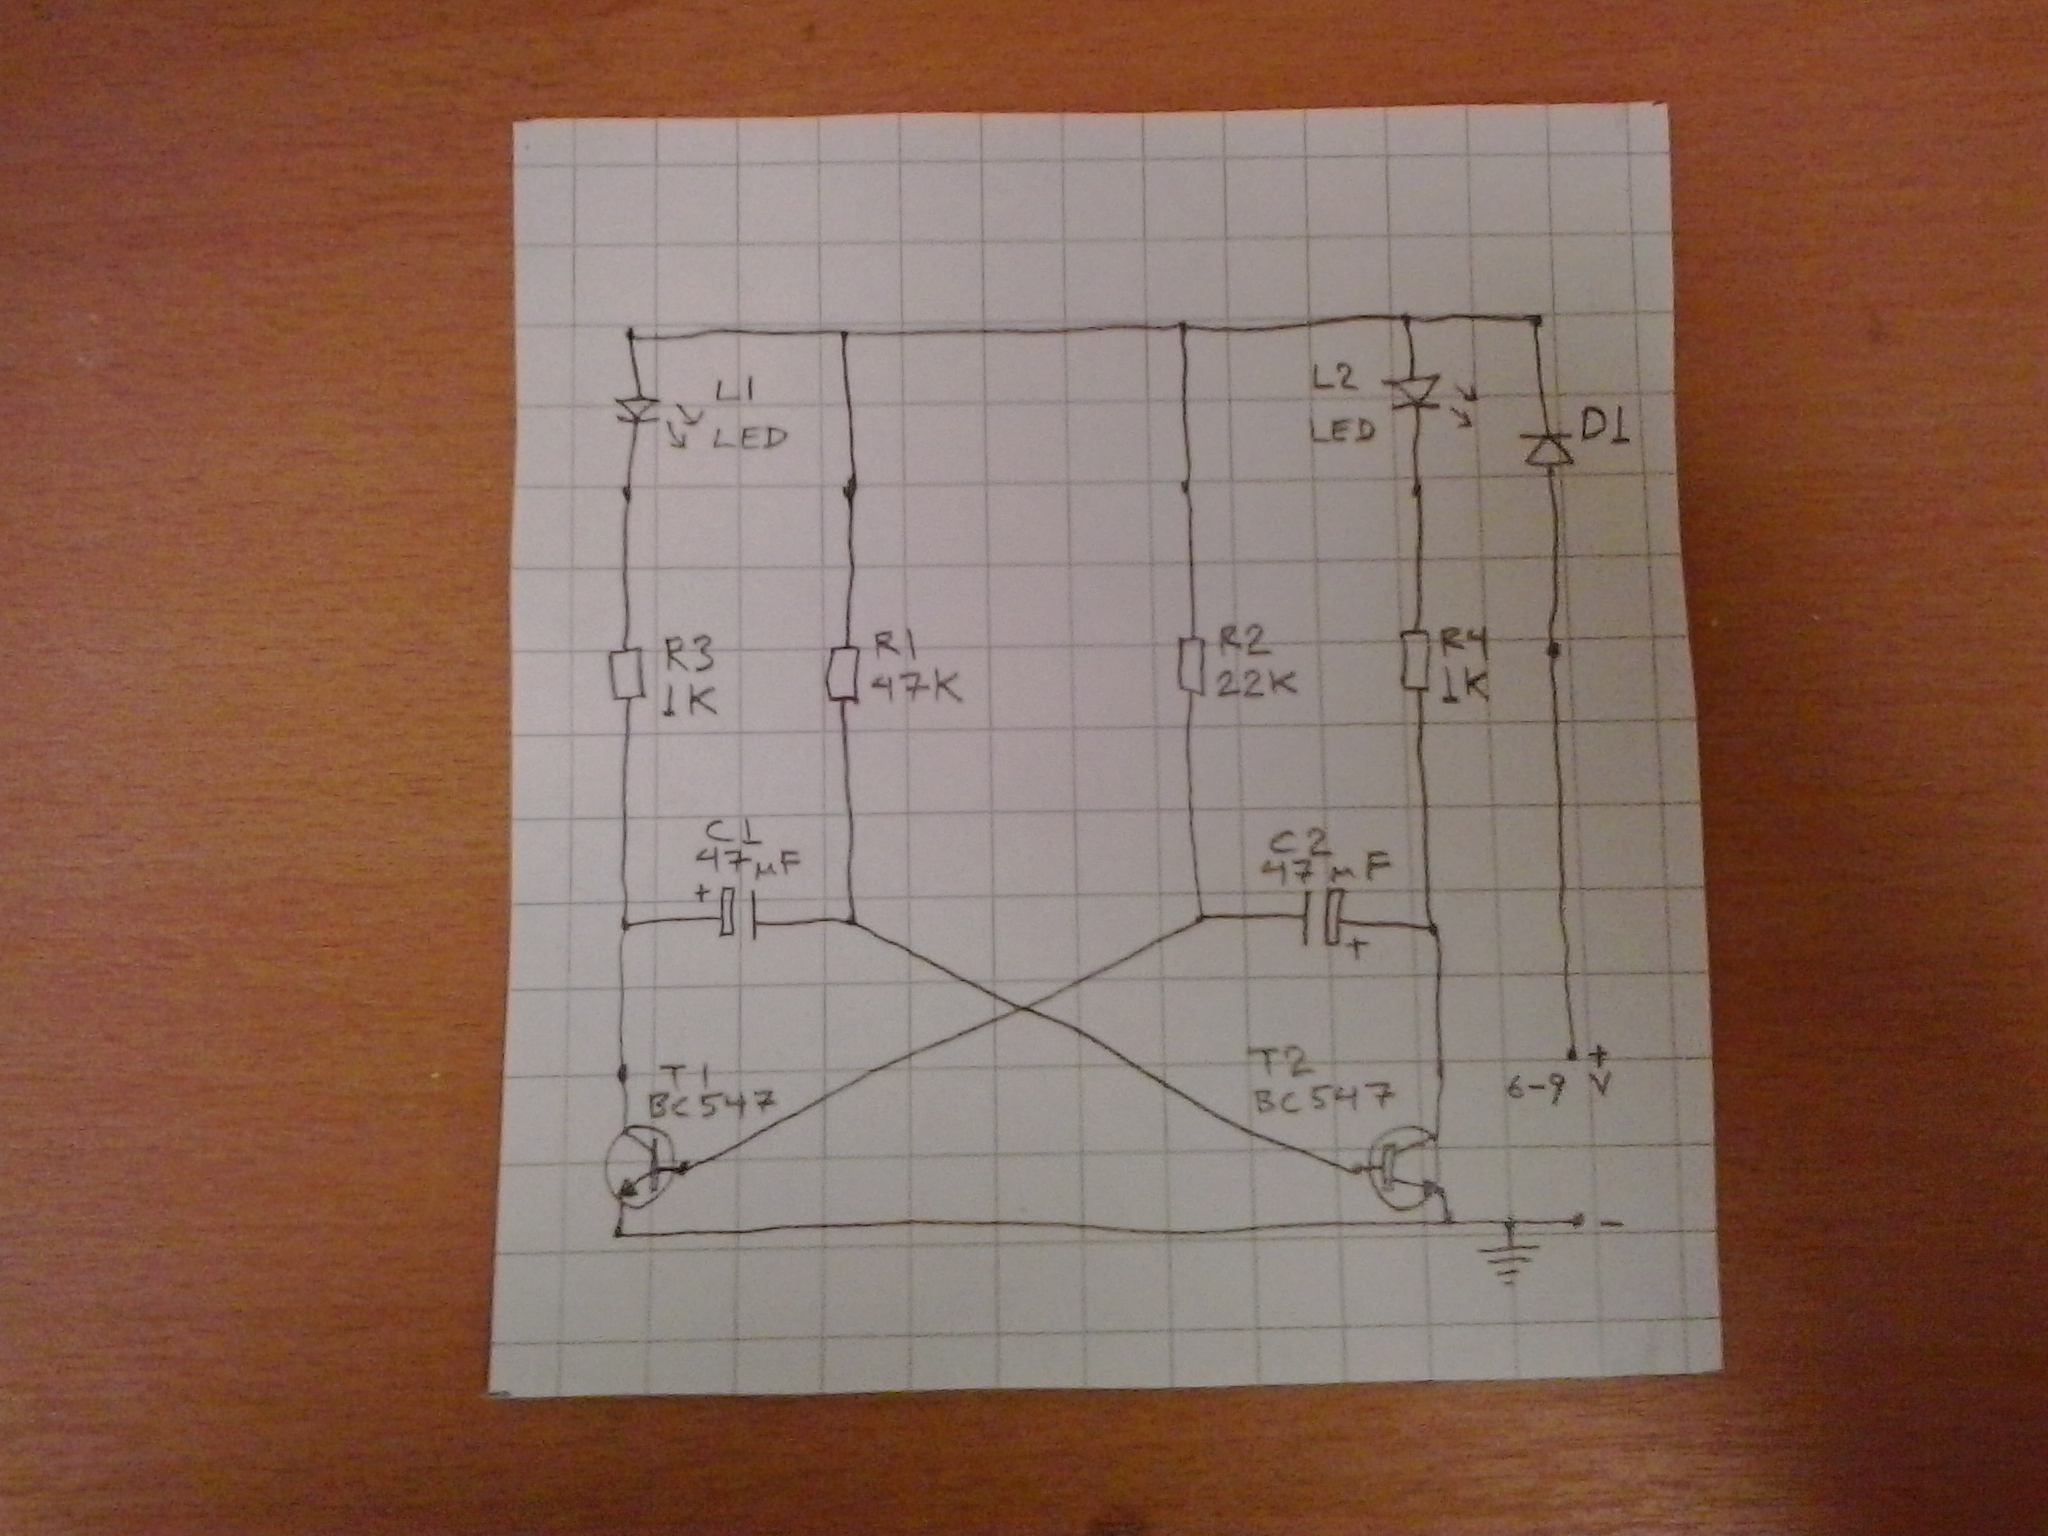 L1
LED
L2
LED
D1
R3
1K
R1
47K
R2
22K
R4
1K
C1
47µF
+
C2
47µF
+
T1
BC547
T2
BC547
+
6-9 V
-